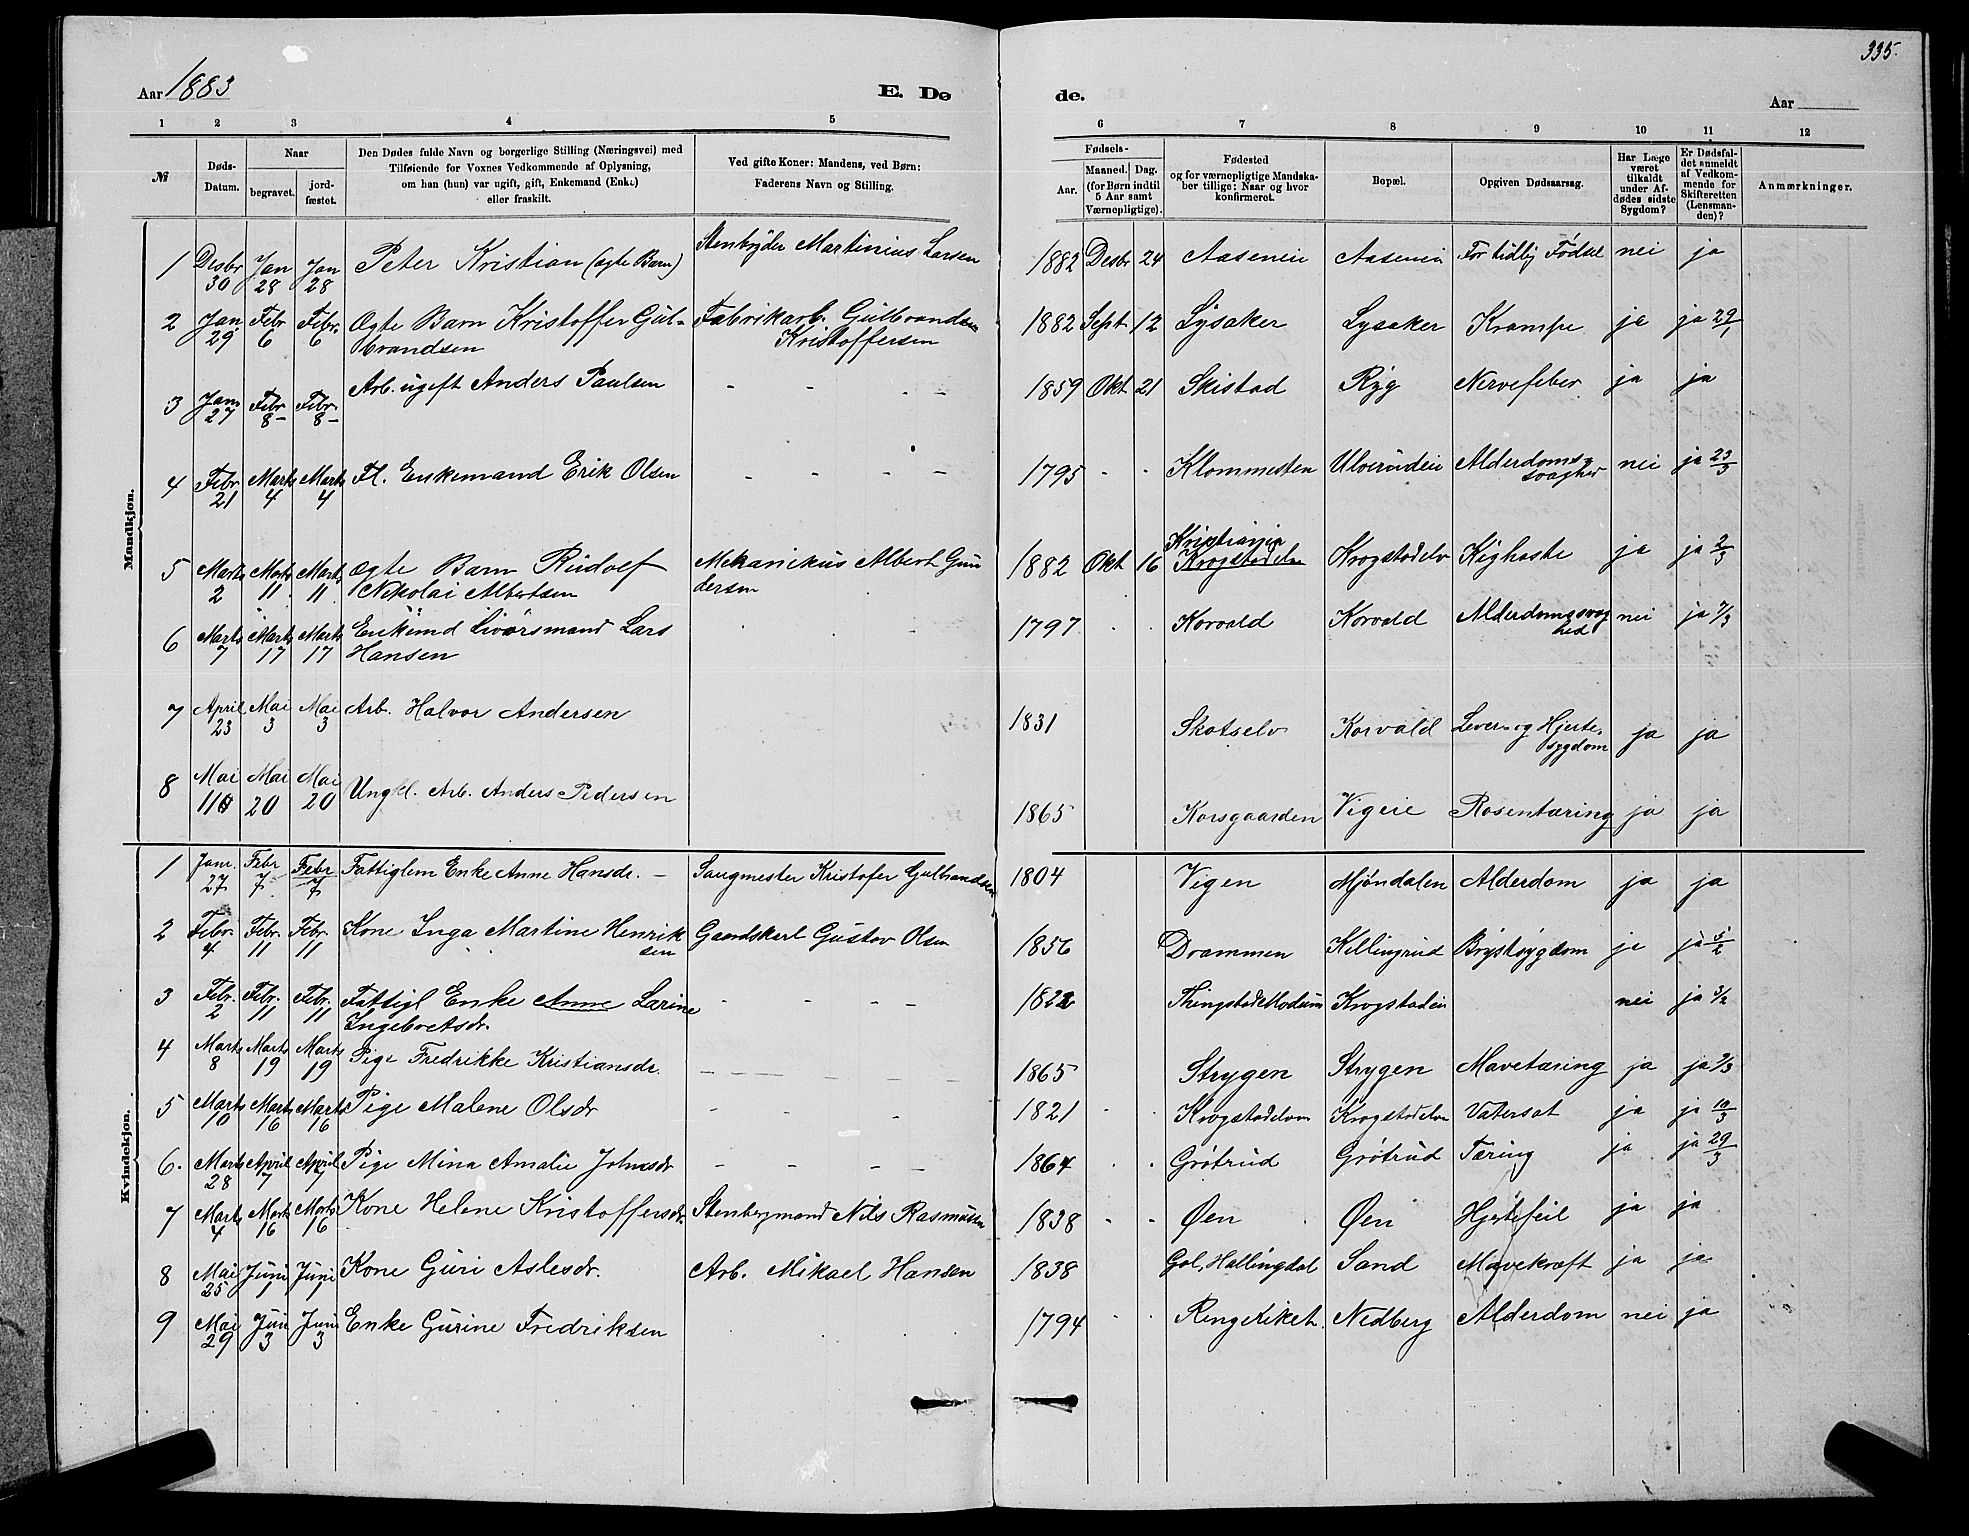 335.
Aar 1883
E. Dø
de.
Aar
1 2 3 4 5
6 7 8 9 10 11 12
№
Døds-Datum.
Naar
begravet.
jordfæstet.
Den Dødes fulde Navn og borgerlige Stilling (Næringsvei) med
Tilføiende for Voxnes Vedkommende af Oplysning,
om han (hun) var ugift, gift, Enkemand (Enke)
eller fraskilt.
Ved gifte Koner: Mandens, ved Børn:
Faderens Navn og Stilling.
Fødsels-
Aar.
Maaned. Dag.
(for Børn indtil
5 Aar samt
Værnepligtige).
Fødested
og for værnepligtige Mandska-
ber tillige: Naar og hvor
konfirmeret.
Bopæl.
Opgiven Dødsaarsag.
Har Læge
været
tilkaldt
under Af-
dødes sidste
Sygdom?
Er Dødsfal-
det anmeldt
af Vedkom-
mende for
Skifteretten
(Lensman-
den)?
Anmærkninger.
Mandkjøn.
1 Desbr 30 Jan 28 Jan 28 Peter Kristian (ægte Barn) Martinius Larsen 1882 Desbr 24 Aaseneie Aaseneie For tidlig Fødsel nei ja
2 Jan 29 Febr 6 Febr. 6 Ægte Barn Kristoffer Gul-
brandsen Fabrikarb. Gulbrandsen
Kristoffersen 1882 Sept 12 Lysaker Lysaker Krampe ja ja 29/1
3 Jan 27 Febr 8 Febr 8 Arb. ugift Anders Paulsen - - - - 1859 Okt 21 Skistad Ryg Nervefeber ja ja
4 Febr 21 Marts 4 Marts 4 Fl. Enkemand Erik Olsen - - - - 1795 - - Klommesten Ulverudeie Alderdoms-
svaghed nei ja 23/3
5 Marts 2 Marts 11 Marts 11 Ægte Barn Rudolf
Nikolai Albertsen Mekanikus Albert Gun
dersen 1882 Okt 16 Kristiania
Krogstadelven Krogstadelv Kighoste ja ja 2/3
6 Marts 7 Marts 17 Marts 17 Lars
Hansen 1797 Korvald Korvald Alderdomssvag
hed nei ja 7/3
7 April 23 Mai 3 Mai 3 Arb. Halvor Andersen 1831 Skotselv Korvald Lever- og Hjerte-
sygdom ja ja
8 Mai 11 Mai 20 Mai 20 Ungkl. Arb. Anders Pedersen 1865 Korsgaarden Vigeie Rosentæring ja ja
Kvindekjøn.
1 Janr. 27 Febr 7 Febr 7 Fattiglem Enke Anne Hansdr. - Saugmester Kristofer Gulbrandsen 1804 Vigen Mjøndalen Alderdom ja ja
2 Febr. 4 Febr. 11 Febr. 11 Kone Inga Martine Henrik
sen Gaardskarl Gustav Olsen 1856 Drammen Killingrud Brystsygdom ja ja 5/2
3 Febr. 2 Febr. 11 Febr. 11 Fattigl Enke Anne Larine
Ingebretsdr. - - - - 1822 Krogstadeie nei ja 3/2
4 Marts 8 Marts 19 Marts 19 Pige Fredrikke Kristiansdr. - - - - 1865 Strygen Strygen Mavetæring ja ja 9/3
5 Marts 10 Marts 16 Marts 16 Pige Malene Olsdr - - - - 1821 Krogstadelven Krogstadelven Vatersot ja ja 10/3
6. Marts 28 April 7 April 7 Pige Mina Amalie Johnsdr - - - - 1864 Grøtrud Grøtrud Tæring ja ja 29/3
7 Marts 4 Marts 16 Marts 16 Kone Helene Kristoffersdr. Nils Rasmussen 1838 - - Øen Øen Hjertefeil ja ja
8 Mai 25 Juni 1 Juni 1 Kone Guri Aslesdr. Arb. Mikael Hansen 1838 Gol, Hallingdal Sand Mavekræft ja ja
9 Mai 29 Juni 3 Juni 3 Enke Gurine Fredriksen 1794 Ringeriket Nedberg Alderdom nei ja